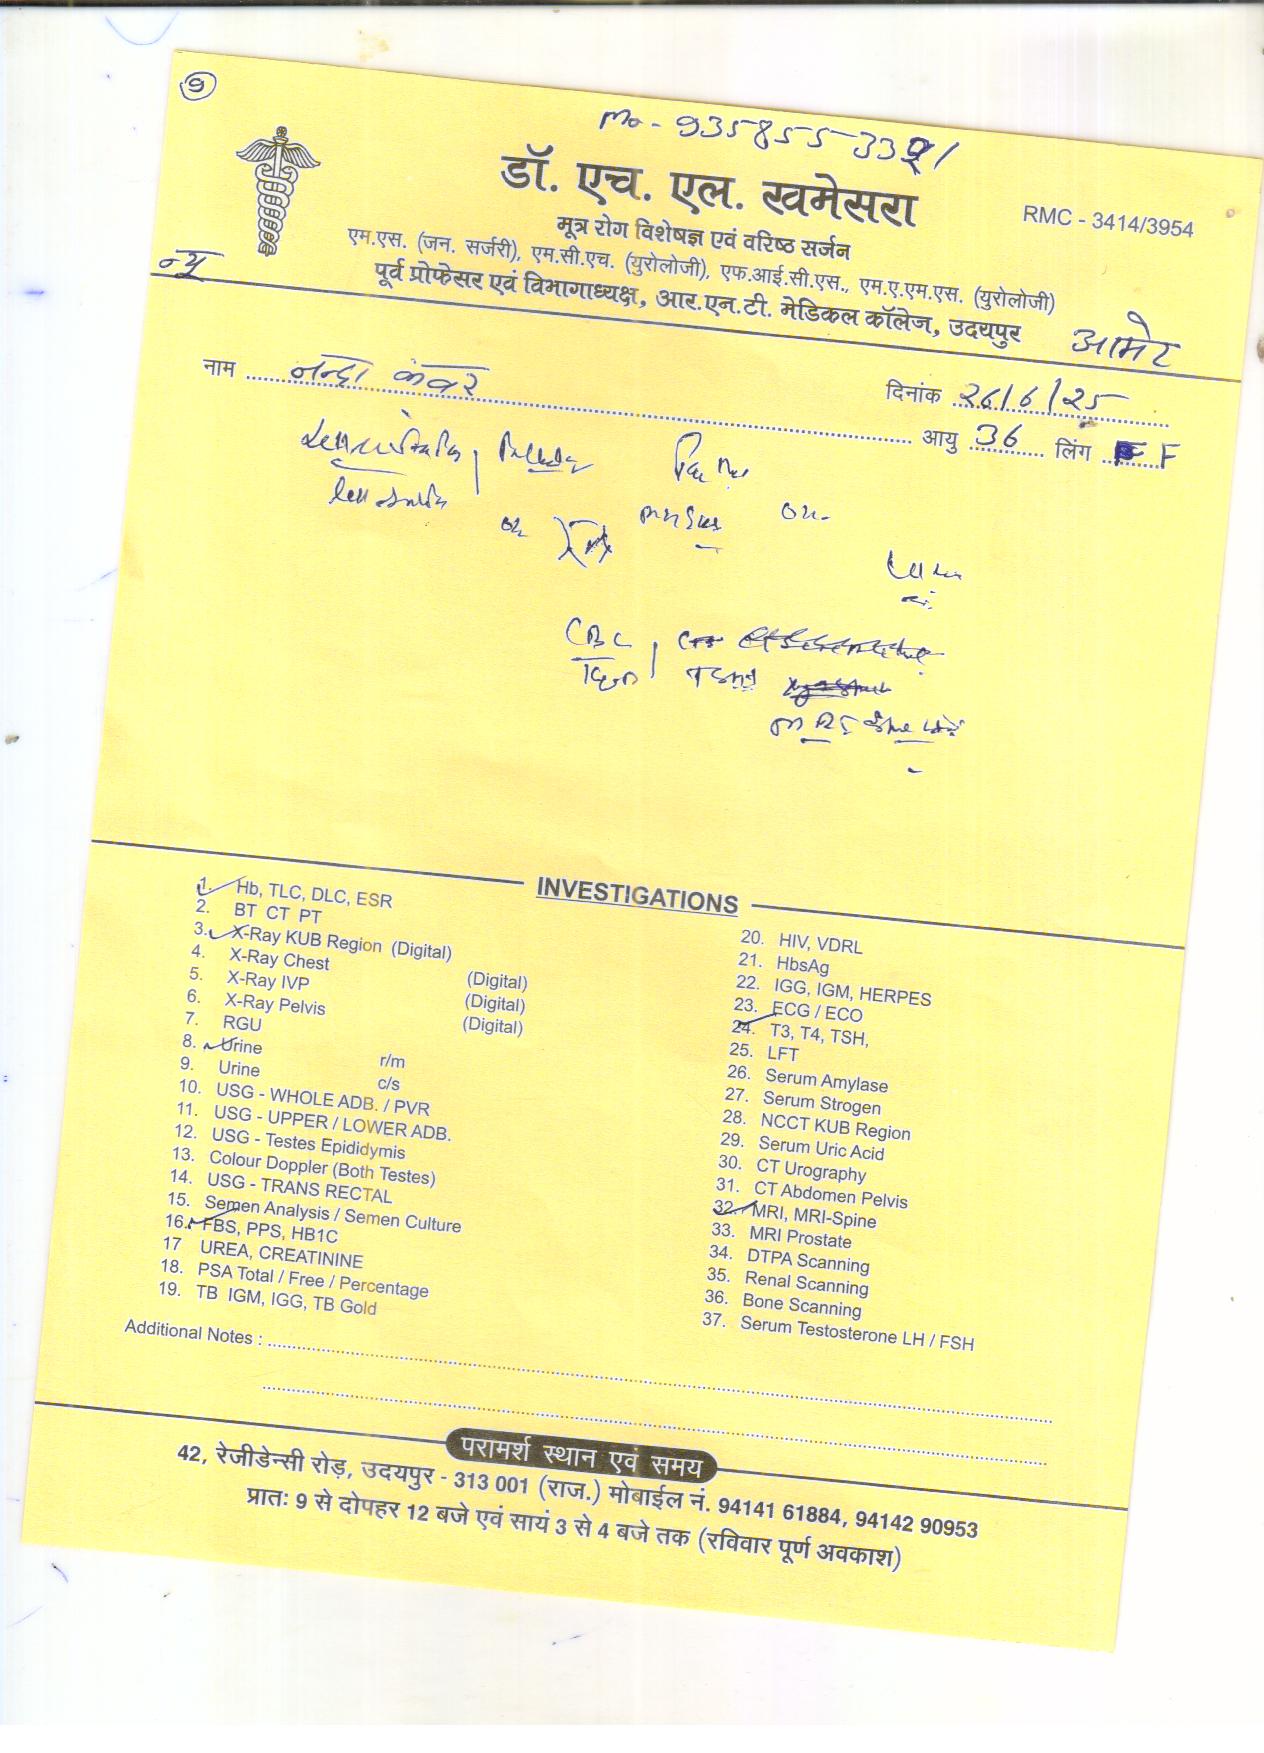 9
Mo - 935855-33
डॉ. एच. एल. खमेसरा
RMC - 3414/3954
मूत्र रोग विशेषज्ञ एवं वरिष्ठ सर्जन
एम.एस. (जन. सर्जरी), एम.सी.एच. (युरोलोजी), एफ.आई.सी.एस., एम.ए.एम.एस. (युरोलोजी)
पूर्व प्रोफेसर एवं विभागाध्यक्ष, आर.एन.टी. मेडिकल कॉलेज, उदयपुर
न्यू
आमेट
नाम नन्दा कंवर
दिनांक 26/6/25
आयु 36 लिंग F
CBC
INVESTIGATIONS
1. Hb, TLC, DLC, ESR
2. BT CT PT
3. X-Ray KUB Region (Digital)
4. X-Ray Chest (Digital)
5. X-Ray IVP (Digital)
6. X-Ray Pelvis (Digital)
7. RGU
8. Urine r/m
9. Urine c/s
10. USG - WHOLE ADB. / PVR
11. USG - UPPER / LOWER ADB.
12. USG - Testes Epididymis
13. Colour Doppler (Both Testes)
14. USG - TRANS RECTAL
15. Semen Analysis / Semen Culture
16. FBS, PPS, HB1C
17 UREA, CREATININE
18. PSA Total / Free / Percentage
19. TB IGM, IGG, TB Gold
20. HIV, VDRL
21. HbsAg
22. IGG, IGM, HERPES
23. ECG / ECO
24. T3, T4, TSH,
25. LFT
26. Serum Amylase
27. Serum Strogen
28. NCCT KUB Region
29. Serum Uric Acid
30. CT Urography
31. CT Abdomen Pelvis
32. MRI, MRI-Spine
33. MRI Prostate
34. DTPA Scanning
35. Renal Scanning
36. Bone Scanning
37. Serum Testosterone LH / FSH
Additional Notes :
परामर्श स्थान एवं समय
42, रेजीडेन्सी रोड़, उदयपुर - 313 001 (राज.) मोबाईल नं. 94141 61884, 94142 90953
प्रातः 9 से दोपहर 12 बजे एवं सायं 3 से 4 बजे तक (रविवार पूर्ण अवकाश)